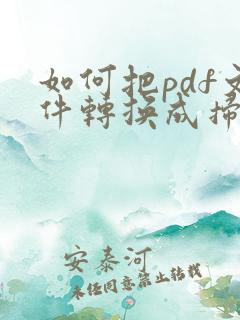 如何把pdf文
件轉換成掃
安泰河
未經同意禁止轉載